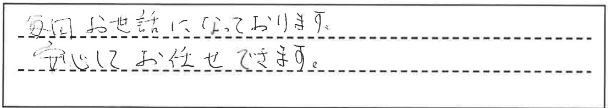 毎回お世話になっております。
安心してお任せできます。